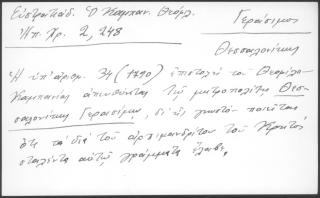 Εὐστρατιάδ. Ὁ Καμπαν. Θεόφιλ.
Ἠπ. Χρ. 2, 248
Γεράσιμος
Θεσσαλονίκης
Ἡ ὑπ' ἀριθμ. 34 (1790) ἐπιστολὴ τοῦ Θεοφίλου
Καμπανίας ἀπευθύνεται τῷ μητροπολίτῃ Θεσ
σαλονίκης Γερασίμῳ, δι' ἧς γνωστὸν ποιεῖται
ὅτι τὰ διὰ τοῦ ἀρχιμανδρίτου τοῦ
σταλέντα αὐτῷ γράμματα ἔλαβε.